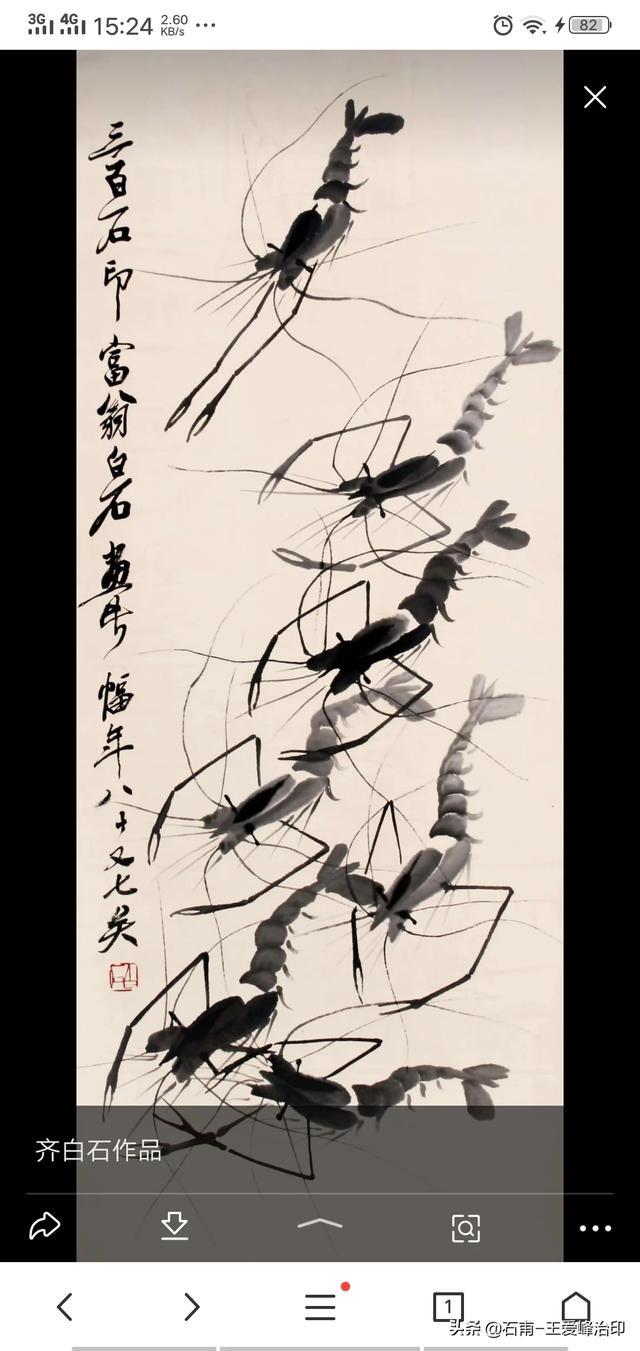 3G 4G 15:24 2.60 KB/s ... 82
三百石印富翁白石画
幅年八十又七矣
齐白石作品
1
头条 @石甫-王爱峰治印